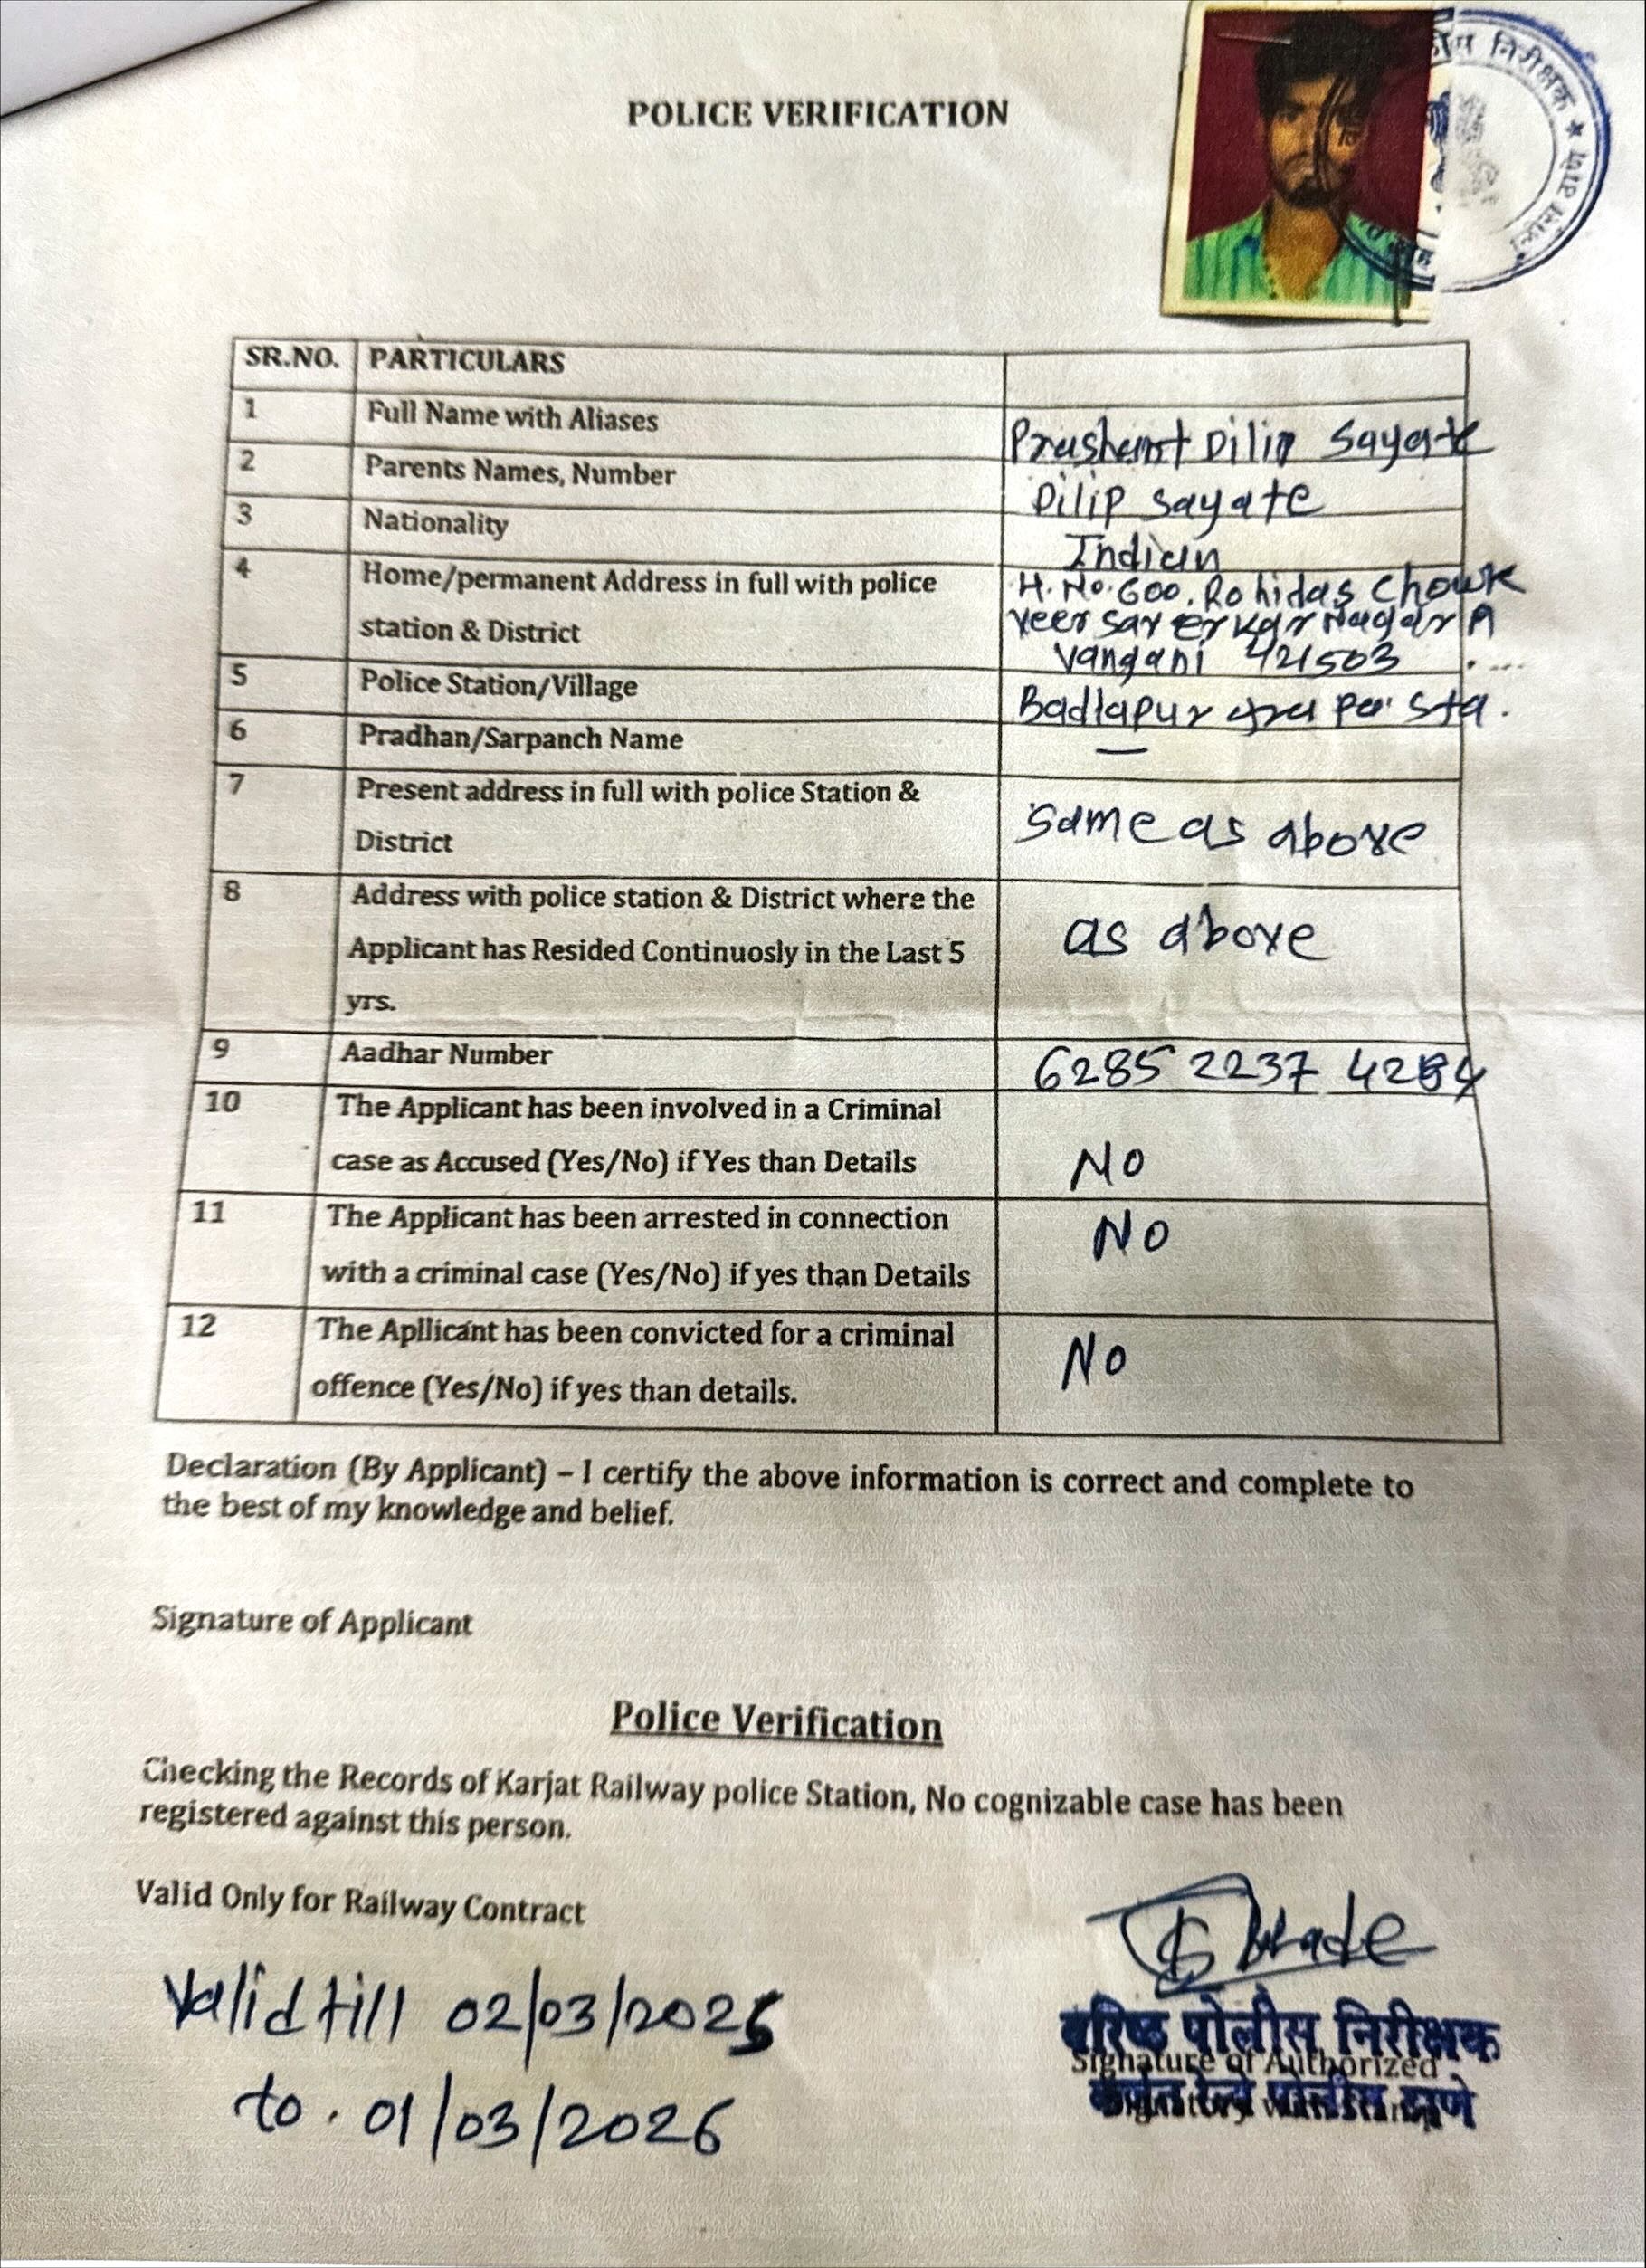 POLICE VERIFICATION
निरीक्षक ★
SR.NO. PARTICULARS
1 Full Name with Aliases Prashant Dilip Sayate
2 Parents Names, Number Dilip Sayate
3 Nationality Indian
4 Home/permanent Address in full with police station & District H. No. 600. Rohidas Chowk
Veer Saverkar Nagar
Vangani 421503
5 Police Station/Village Badlapur Sta.
6 Pradhan/Sarpanch Name —
7 Present address in full with police Station &
District Same as above
8 Address with police station & District where the
Applicant has Resided Continuosly in the Last 5 as above
yrs.
9 Aadhar Number 6285 2237
10 The Applicant has been involved in a Criminal
case as Accused (Yes/No) if Yes than Details No
11 The Applicant has been arrested in connection No
with a criminal case (Yes/No) if yes than Details
12 The Apllicant has been convicted for a criminal No
offence (Yes/No) if yes than details.
Declaration (By Applicant) – I certify the above information is correct and complete to
the best of my knowledge and belief.
Signature of Applicant
Police Verification
Checking the Records of Karjat Railway police Station, No cognizable case has been
registered against this person.
Valid Only for Railway Contract
Valid till 02/03/2025
to . 01/03/2026
वरिष्ठ पोलीस निरीक्षक
Signature of Authorized
कर्जत रेल्वे पोलीस ठाणे